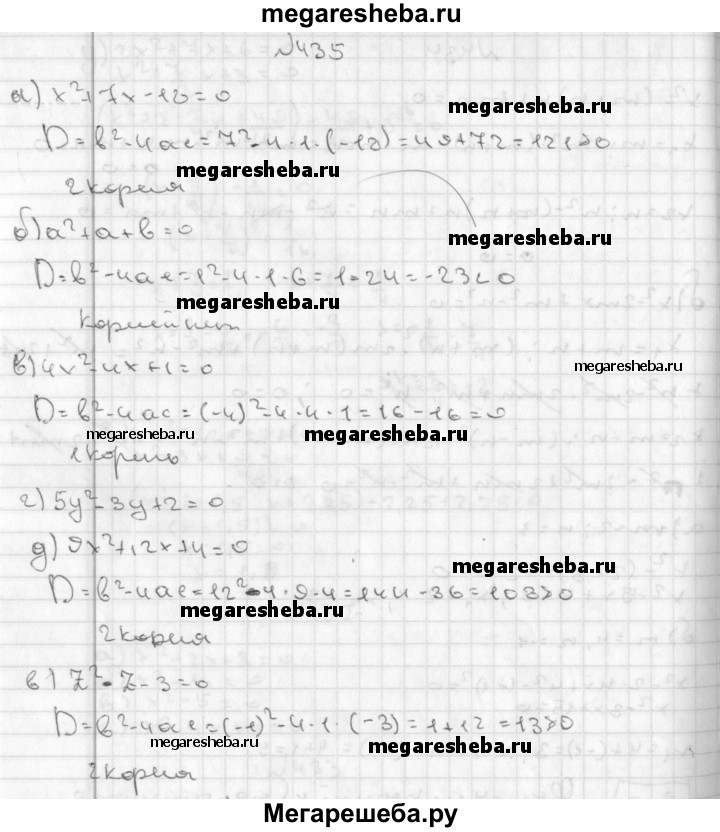 megaresheba.ru
№435
а) x²+7x-18=0
megaresheba.ru
D=b²-4ac=7²-4·1·(-18)=49+72=121>0
megaresheba.ru
2 корня
б) a²+a+6=0
megaresheba.ru
D=b²-4ac=1²-4·1·6=1-24=-23<0
megaresheba.ru
корней нет
в) 4x²-4x+1=0
megaresheba.ru
D=b²-4ac=(-4)²-4·4·1=16-16=0
megaresheba.ru megaresheba.ru
1 корень
г) 5y²-3y+2=0
д) 9x²+12x+4=0
megaresheba.ru
D=b²-4ac=12²-4·9·4=144-36=108>0
megaresheba.ru
2 корня
в) z²-z-3=0
D=b²-4ac=(-1)²-4·1·(-3)=1+12=13>0
megaresheba.ru megaresheba.ru
2 корня
Мегарешеба.ру